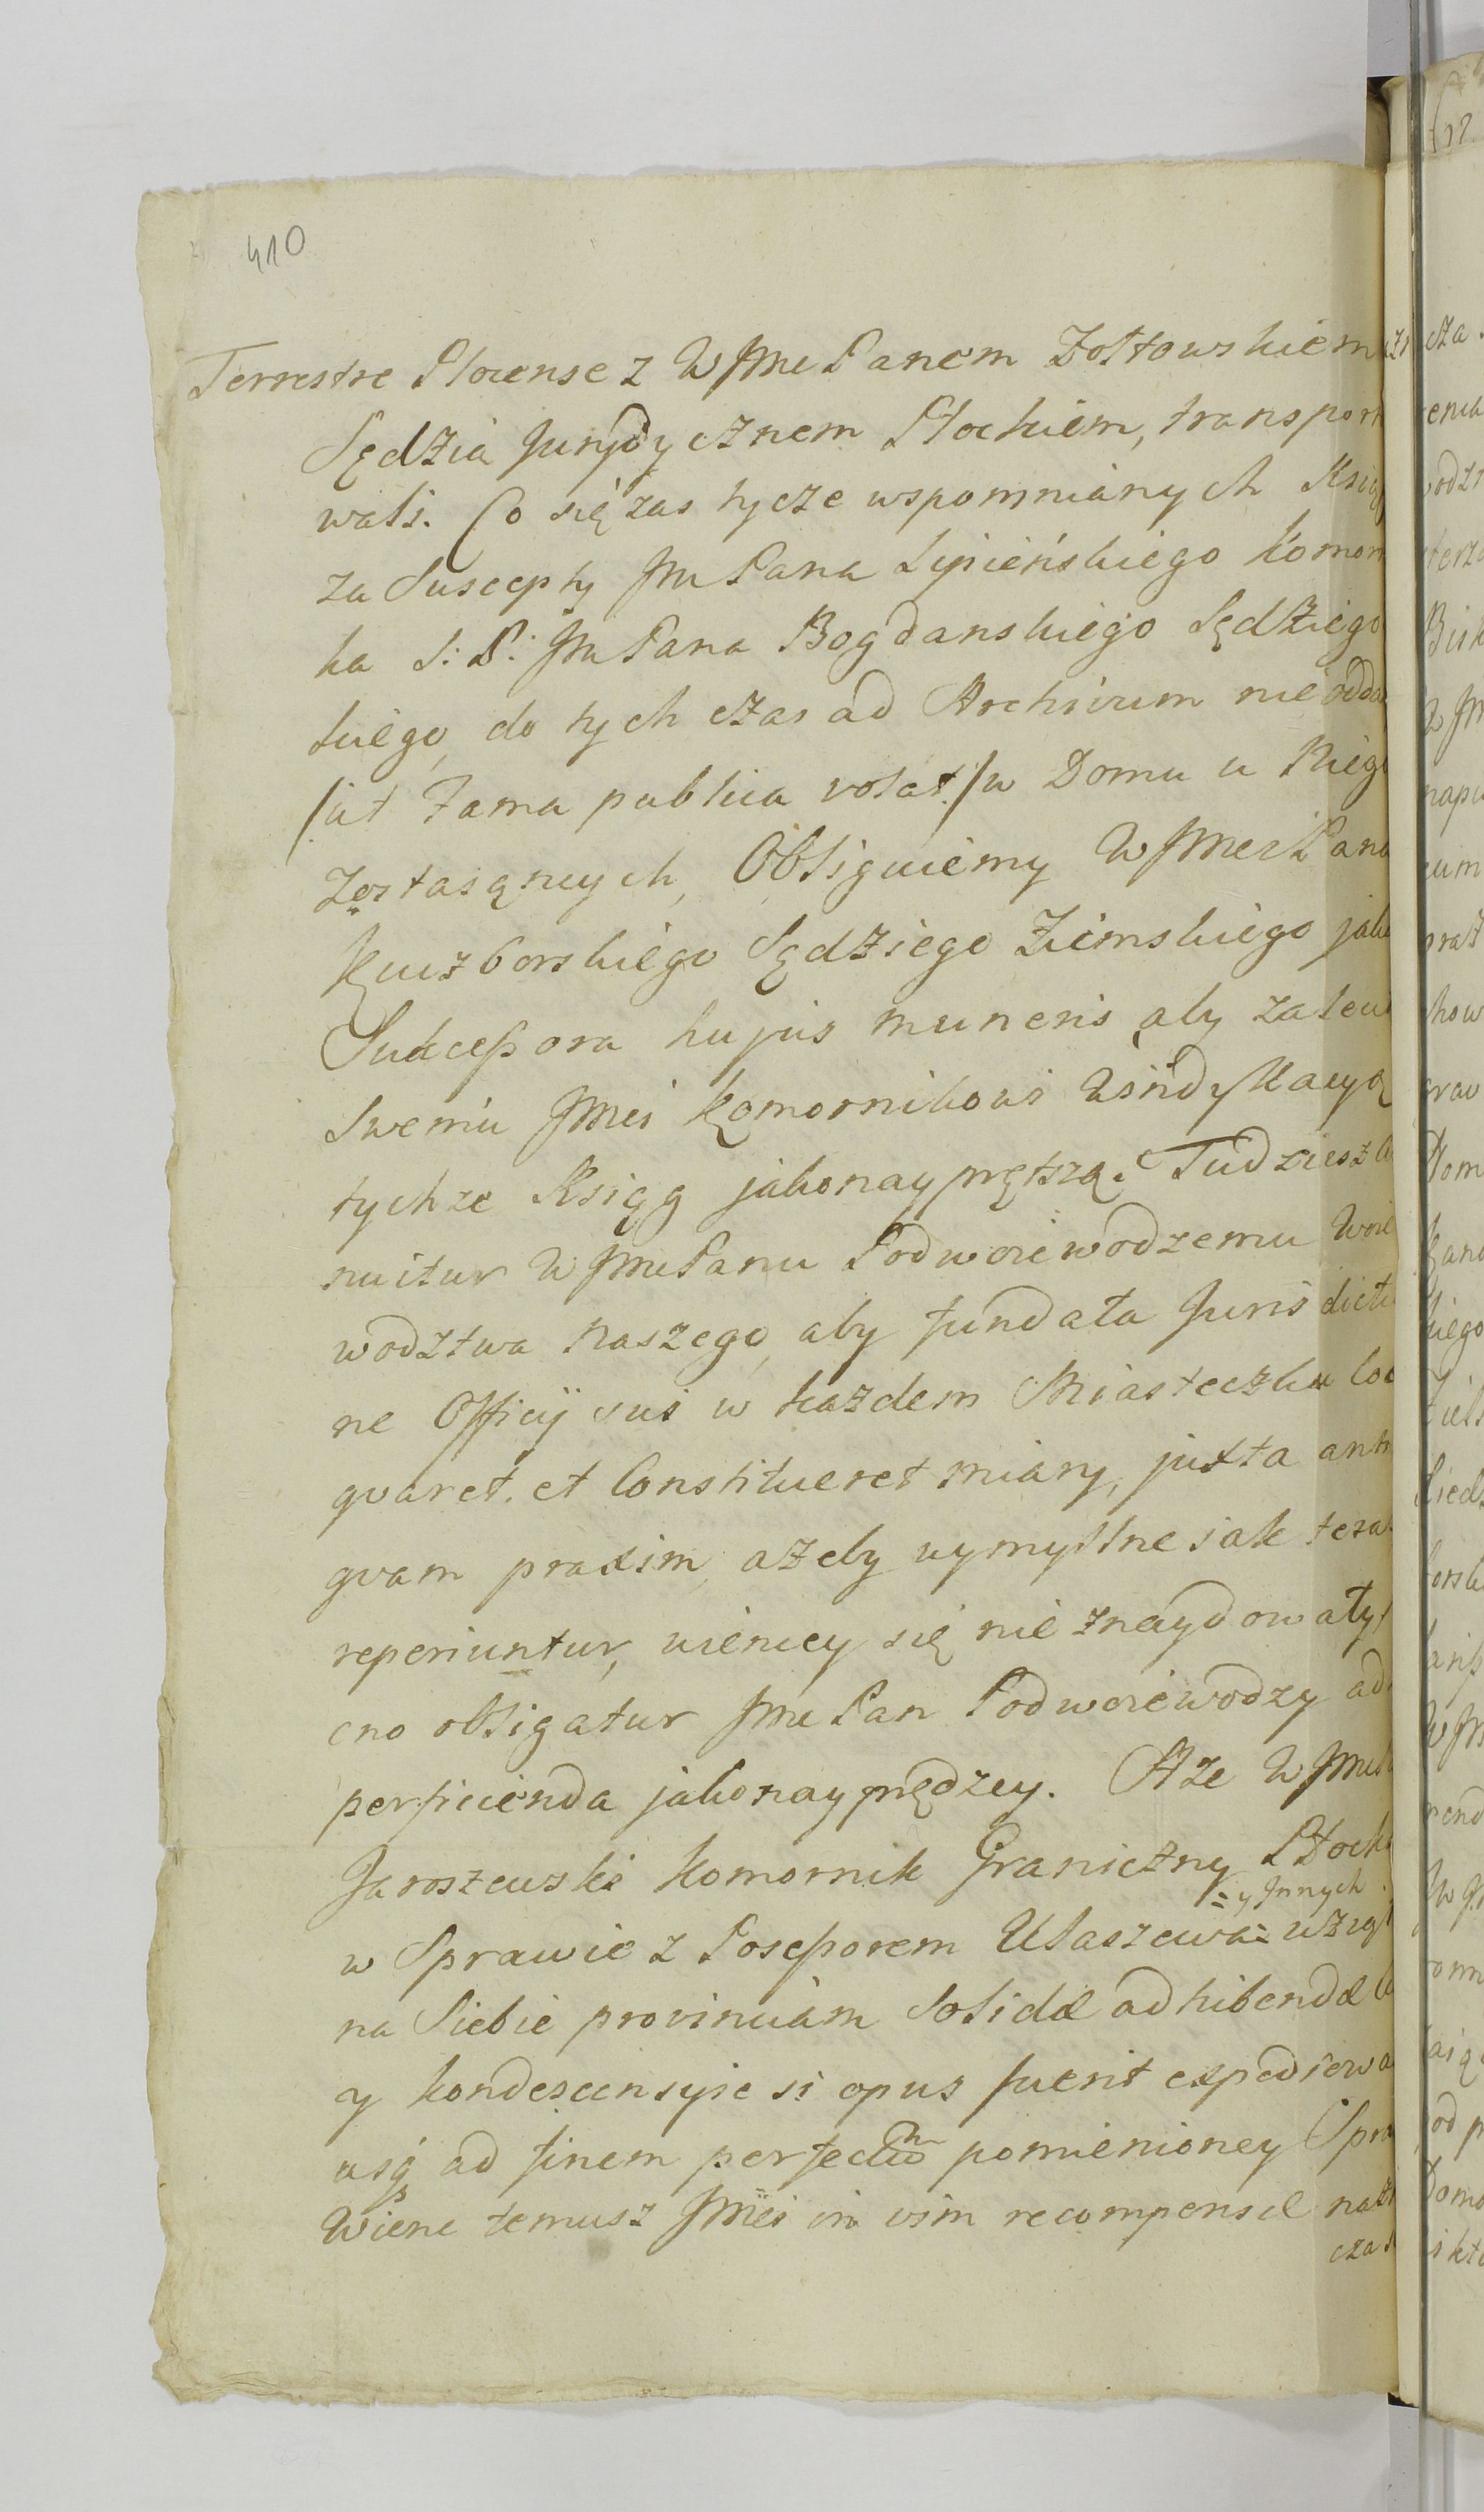 410
Terrestre Plocense z WJmc Panem Zołtowskiem
Sędzią Jurydycznem Płockiem, transpor
wali. Co się zas tycze wspomnianych Ksiąg
za Suscepty Jm Pana Lipieńskiego Komor
ka S: P: Jm Pana Bogdanskiego Sędziego
skiego, do tych czas ad Archivum nie odda
/ut Fama publica volat./ w Domu u Niego
Zostaiących, Obliguiemy WJmci Pana
Kuczborskiego Sędziego Ziemskiego jako
Sukcessora hujus muneris aby zaleci
Swemu Jmci Komornikowi Windykacyą
tychze Ksiąg jakonayprętszą. Tudziesz
nuitur WJmc Panu Podwoiewodzemu Woie
wodztwa Naszego, aby fundata Juris dictio
ne Officÿ sui w kazdem Miasteczku loc
qvaret. et Constitueret miary, juxta anti
qvam praxim, azeby wymyslne iak teraz
reperiuntur, więncey się nie znaydowały
cno obligatur Jmc Pan Podwoiewodzy ad
perficienda jakonayprędzey. A ze WJmc
Jaroszewski Komornik Graniczny Płocki
= y Jnnych
w Sprawie z Possessorem Ułaszewa = wziął
na Siebie provinciam Solidæ adhibendæ
y kondescensyie si opus fuerit expediowa
usq ad finem perfectum pomienioney Spra
Więnc temusz Jmci in vim recompensæ nazn
cza